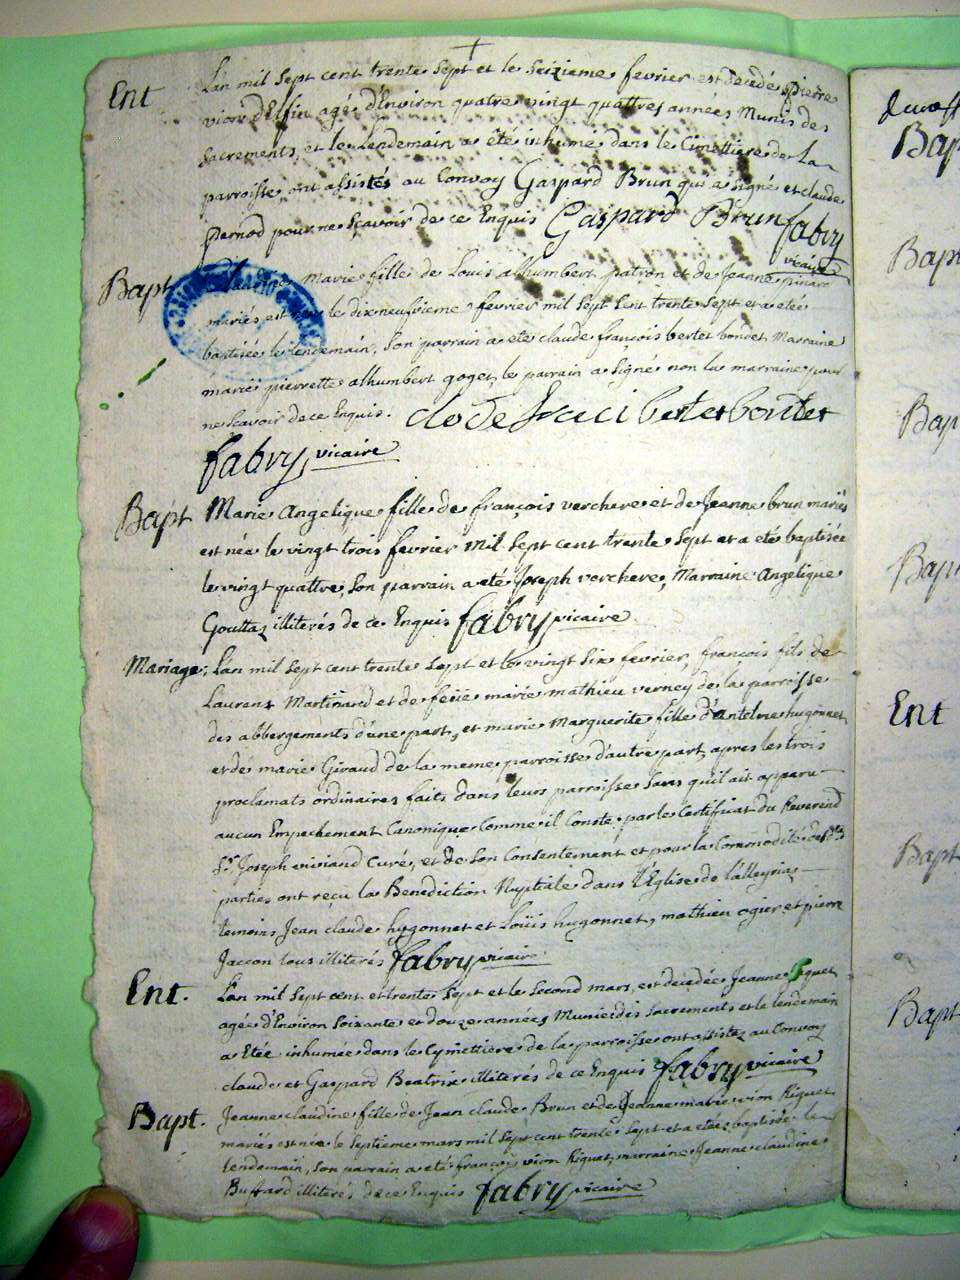 Ent
L'an mil sept cent trente sept et le seizieme fevrier est decedé pierre
vion d'Elfin agé d'Environ quatre vingt quattres années Munis des
sacrements, et le Lendemain a été inhumé dans le Cimettiere de La
parroisse, ont assistés au Convoy Gaspard Brun qui a signé et claude
Pernod pour ne scavoir de ce Enquis Gaspard Brun fabry
vicaire
Bapt
Marie fille de Louis alhumbert patron et de Jeanne
mariés est née le dix neufvieme fevrier mil sept cent trente sept et a etée
baptisée le lendemain, son parrain a eté claude françois bertet bondet Marraine
marie pierrette alhumbert goget, le parrain a signé non la marraine pour
ne scavoir de ce Enquis. bertet bondet
fabry, vicaire
Bapt Marie Angelique fille de françois verchere et de Jeanne brun mariés
est née le vingt trois fevrier Mil sept cent trente sept et a eté baptisée
le vingt quattre, son parrain a eté Joseph verchere, Marraine Angelique
Gouttaz illiterés de ce Enquis fabry vicaire
Mariage: L'an mil sept cent trente sept et le vingt six fevrier françois fils de
Laurent Martinard et de feüe marie mathieu verney de la parroisse
des abbergements d'une part, et marie Marguerite fille d'antelme hugonnet
et de marie Giraud de la meme parroisse d'autre part, apres les trois
proclamats ordinaires faits dans leurs parroisse sans qu'il ait apparu
aucun Empechement Canonique comme il Conste par le Certificat du Reverend
Sr. Joseph curé, et de son Consentement et pour la Commodité des dts
parties ont reçu la Benediction Nuptiale dans l'Eglise de Lalleyriat
temoins Jean claude hugonnet et Loüis hugonnet, mathieu ogier et pierre
Jaccon tous illiterés fabry vicaire
Ent. L'an mil sept cent et trente sept et le second mars, est decedée Jeanne
agée d'Environ soixante et douze années Munie des sacrements et le lendemain
a Etée inhumée dans le Cymettiere de la parroisse ont assistez au Convoy
claude et Gaspard Beatrix illiterés de ce Enquis fabry vicaire
Bapt. Jeanne claudine fille de Jean claude Brun et de Jeanne marie vion Riquet
mariés est née le septieme mars mil sept cent trente sept et a etée baptisée le
lendemain, son parrain a eté françois vion Riquet, marraine Jeanne claudine
Buffard illiterés de ce Enquis fabry vicaire
Bapt
Bapt
Bapt
Bapt
Ent
Bapt
Bapt